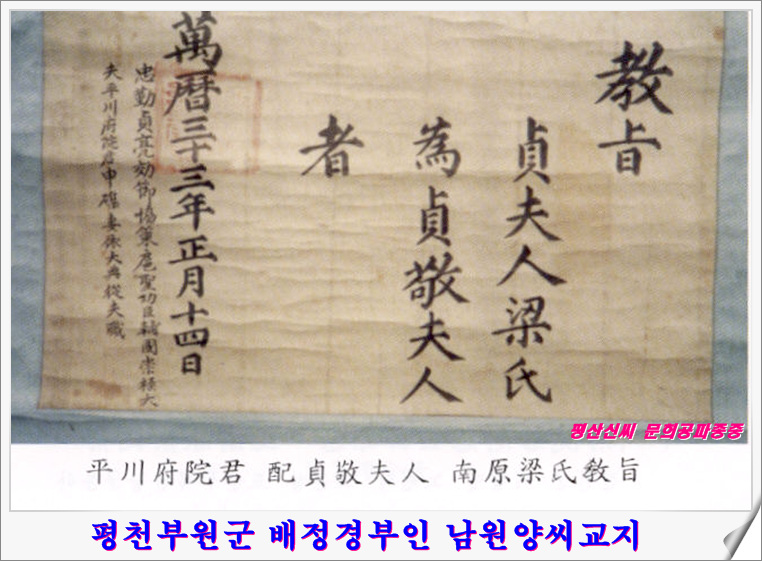 教旨
貞夫人梁氏
為貞敬夫人
者
萬曆三十三年正月十四日
忠勤貞亮効節協策扈聖功臣輔國崇祿大
夫平川府院君申磼妻依大典從夫職
평산신씨 문희공파종중
平川府院君 配貞敬夫人 南原梁氏敎旨
평천부원군 배정경부인 남원양씨교지